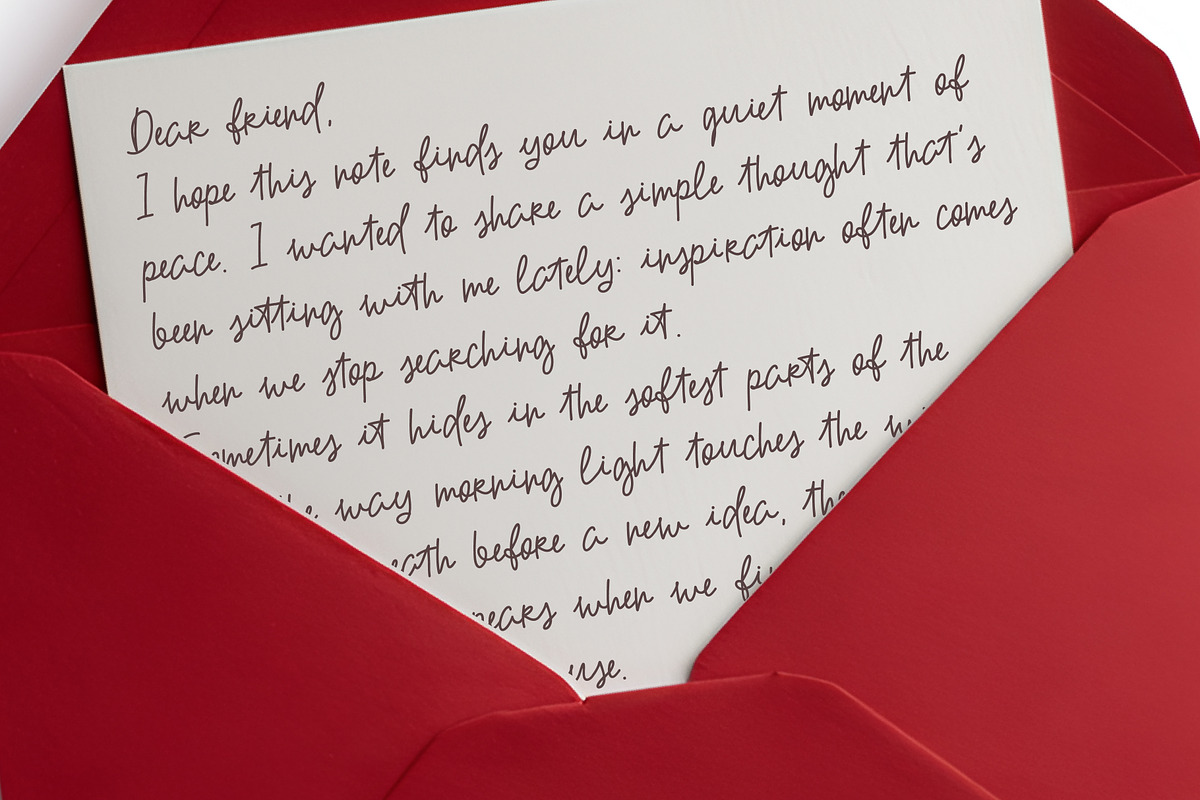 Dear friend,
I hope this note finds you in a quiet moment of
peace. I wanted to share a simple thought that's
been sitting with me lately: inspiration often comes
when we stop searching for it.
it hides in the softest parts of the
way morning light touches the
before a new idea,
when we